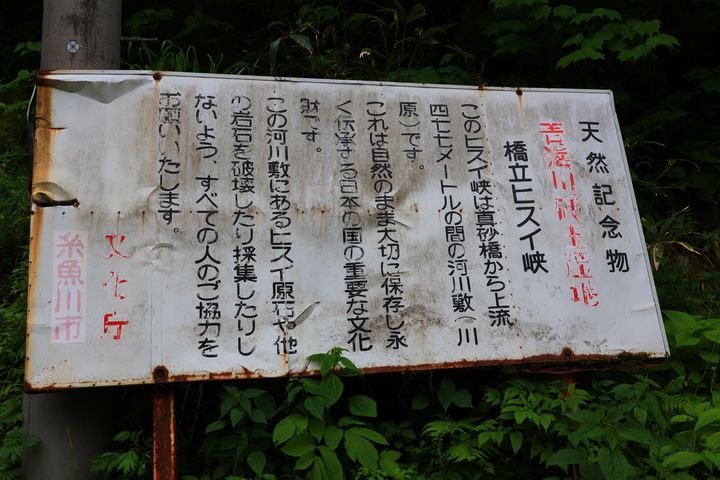 天然記念物
青海川硬玉産地
橋立ヒスイ峡
このヒスイ峡は真砂橋から上流
四七七メートルの間の河川敷（川
原）です。
これは自然のまま大切に保存し永
く伝承する日本の国の重要な文化
財です。
この河川敷にあるヒスイ原石や他
の岩石を破壊したり採集したりし
ないよう、すべての人のご協力を
お願いいたします。
文化庁
糸魚川市